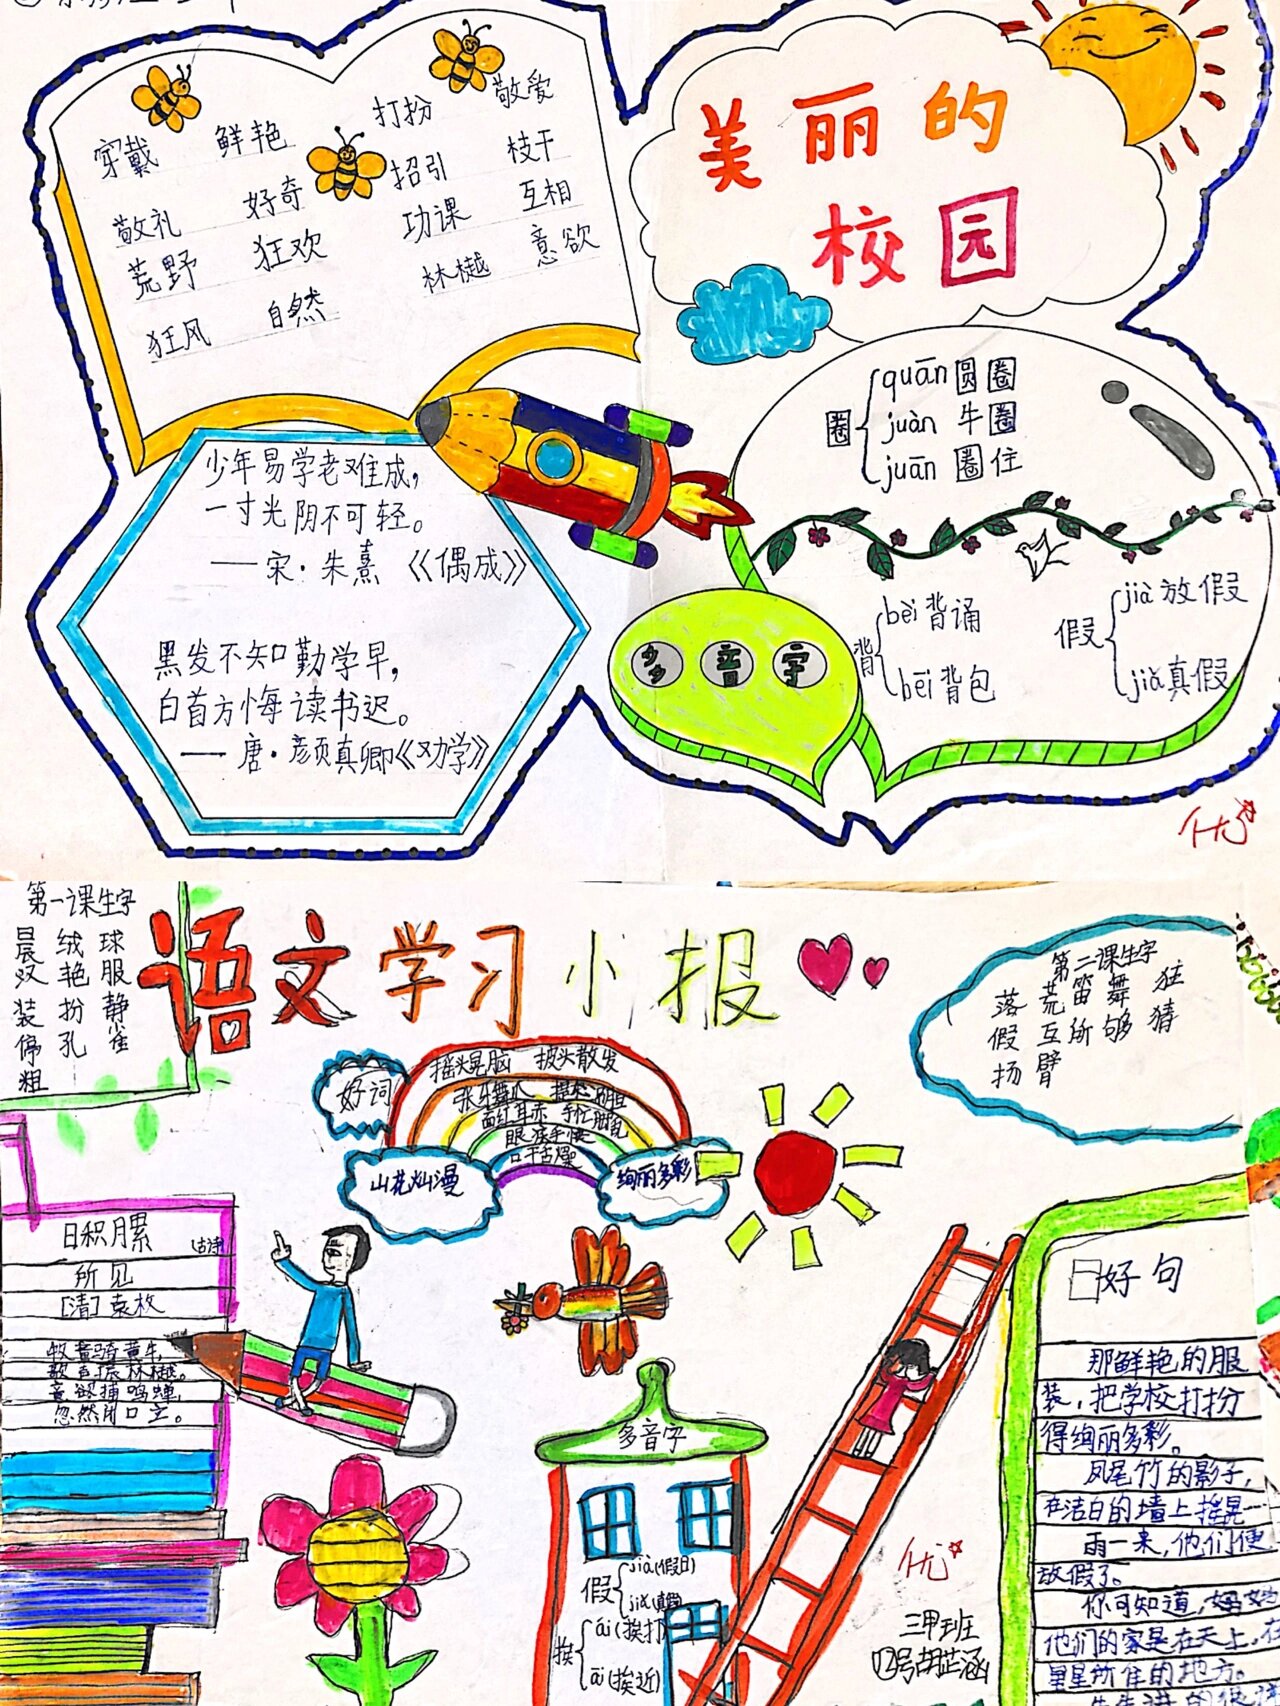 穿戴 鲜艳 打扮 敬爱
敬礼 好奇 招引 枝干
荒野 狂欢 功课 互相
狂风 自然 林樾 意欲
少年易学老难成，
一寸光阴不可轻。
——宋·朱熹《偶成》
黑发不知勤学早，
白首方悔读书迟。
——唐·颜真卿《劝学》
美丽的
校园
圈
quān 圆圈
juàn 牛圈
juān 圈住
多音字
背
bèi 背诵
bēi 背包
假
jià 放假
jiǎ 真假
优
第一课生字
晨 绒 球
汉 艳 服
装 扮 静
停 孔 雀
粗
语文学习小报
第二课生字
落 荒 笛 舞 狂
假 互 所 够 猜
扬 臂
好词
摇头晃脑 披头散发
张牙舞爪 提
面红耳赤 手忙脚乱
眼疾手快
口干舌燥
山花灿漫
绚丽多彩
日积月累 (古诗)
所见
[清] 袁枚
牧童骑黄牛，
歌声振林樾。
意欲捕鸣蝉，
忽然闭口立。
多音字
假
jià(假日)
jiǎ(真假)
挨
ái(挨打)
āi(挨近)
优
三甲班
12号胡芷涵
好句
那鲜艳的服
装，把学校打扮
得绚丽多彩。
凤尾竹的影子，
在洁白的墙上摇晃……
雨一来，他们便
放假了。
你可知道，妈妈
他们的家是在天上，在
星星所住的地方。